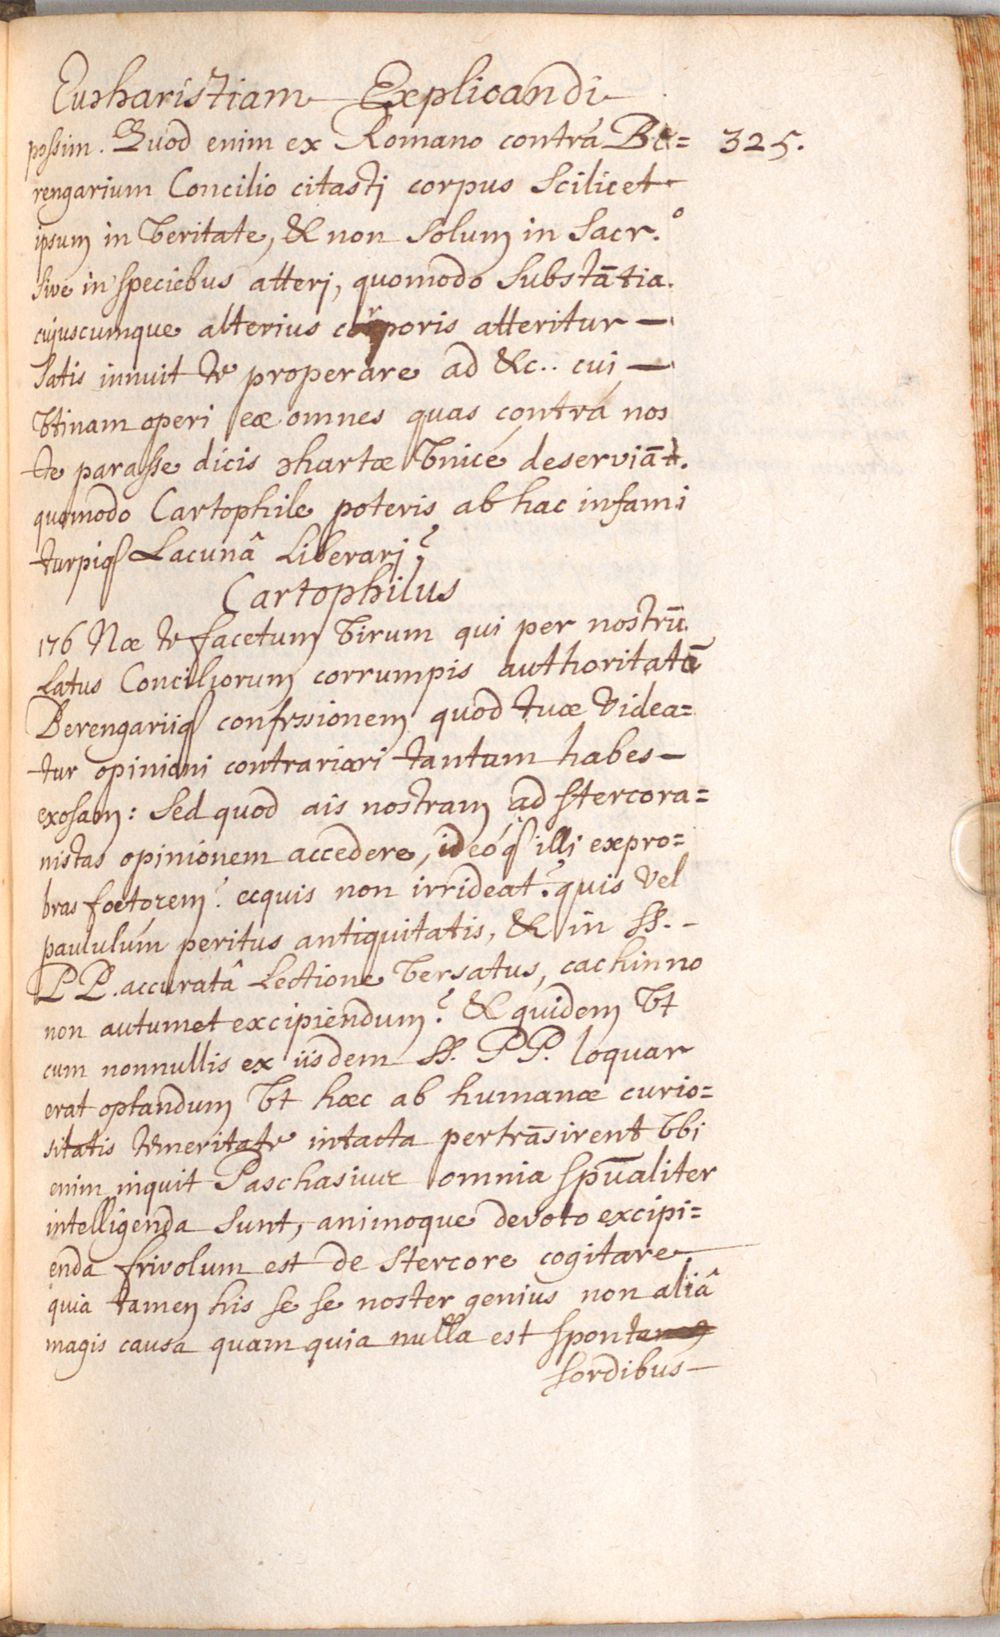 Eucharistiam Explicandi
possim. Quod enim ex Romano contrà Be= 325.
rengarium Concilio citasti corpus scilicet
ipsum in veritate, & non solum in Sacr.º
sive in speciebus atteri, quomodo substātia.
cujuscumque alterius corporis atteritur —
satis innuit te properare ad &c.. cui —
vtinam operi eæ omnes quas contrà nos
te parasse dicis chartæ vnicé deserviāt.
quomodo Cartophile poteris ab hac infami
turpiq Lacunâ Liberari?
Cartophilus
176 Næ te facetum virum qui per nostrū
Latus Conciliorum corrumpis authoritatē
Berengariiq confessionem quod tuæ videa=
tur opinioni contrariari tantum habes —
exosam: Sed quod ais nostram ad stercora=
nistas opinionem accedere, ideóq illi expro=
bras foetorem? ecquis non irrideat? quis vel
paululúm peritus antiquitatis, & in SS. -
PP. accuratâ Lectione versatus, cachinno
non autumet excipiendum? & quidem vt
cum nonnullis ex iisdem SS. PP. loquar
erat optandum vt hæc ab humanæ curio=
sitatis temeritate intacta pertrāsirent vbi
enim inquit Paschasius omnia spūaliter
intelligenda sunt, animoque devoto excipi=
enda frivolum est de stercore cogitare.
quia tamen his se se noster genius non aliâ
magis causa quam quia nulla est
sordibus —